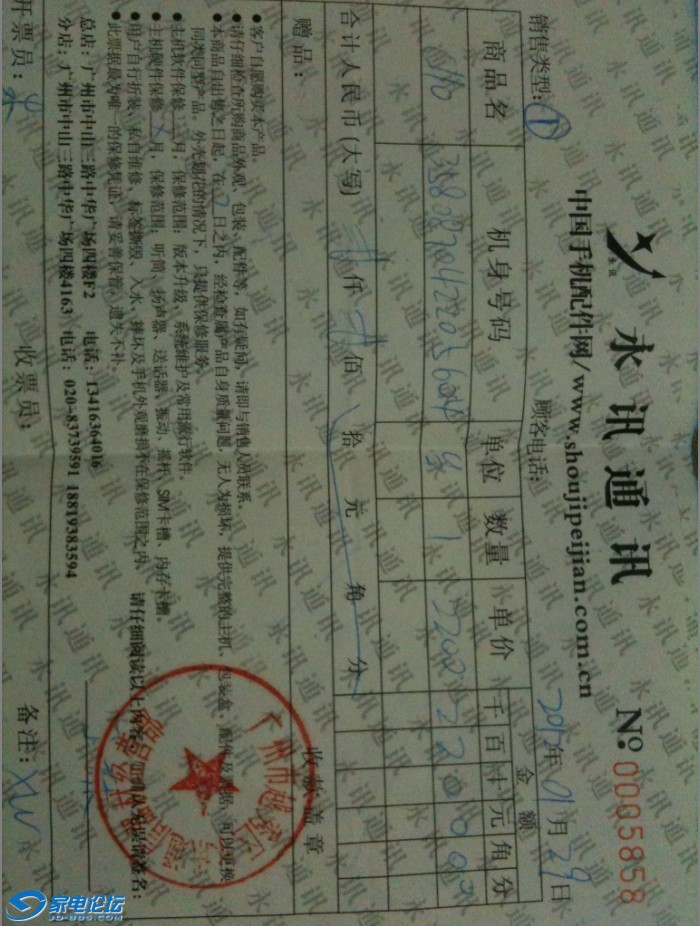 永讯通讯
No: 0005858
中国手机配件网/www.shoujipeijian.com.cn
销售类型: 顾客电话: 2012年01月29日
商品名 机身号码 单位 数量 单价 金额
千 百 十 元 角 分
1 2200 2 2 0 0 0 0
合计人民币(大写) 仟 佰 拾 元 角 分
赠品: 收款盖章
●客户自愿购买本产品。
●请仔细检查所购商品外观、包装、配件等,如有疑问,请即与销售人员联系。
●本商品自出售之日起,在 日之内,经检查属产品自身质量问题,无人为损坏,提供完整的主机、包装盒、配件及
同类同型产品。外光划花的情况下,只提供保修服务。
●主机软件保修 月,保修范围:版本升级,系统维护及常用流行软件。
●主机硬件保修 月,保修范围:听筒、扬声器、送话器、振动、摇杆、SIM卡槽、内存卡槽。
●用户自行拆装、私自维修、标签撕毁、入水、摔坏及手机外观磨损不在保修范围之内。
●此票据最为唯一的保修凭证,请妥善保管,遗失不补。
请仔细阅读以上内容 签名:
总店:广州市中山三路中华广场四楼F2 电话:13416364016
分店:广州市中山三路中华广场四楼4163 电话:020-83739591 18819383594
开票员: 收票员: 备注:
家电论坛
JD-BBS.COM